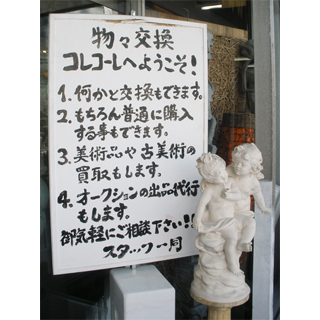 物々交換
コレコーレへようこそ！
1. 何かと交換もできます。
2. もちろん普通に購入
する事もできます。
3. 美術品や古美術の
買取もします。
4. オークションの出品代行
もします。
御気軽にご相談下さい!!
スタッフ一同